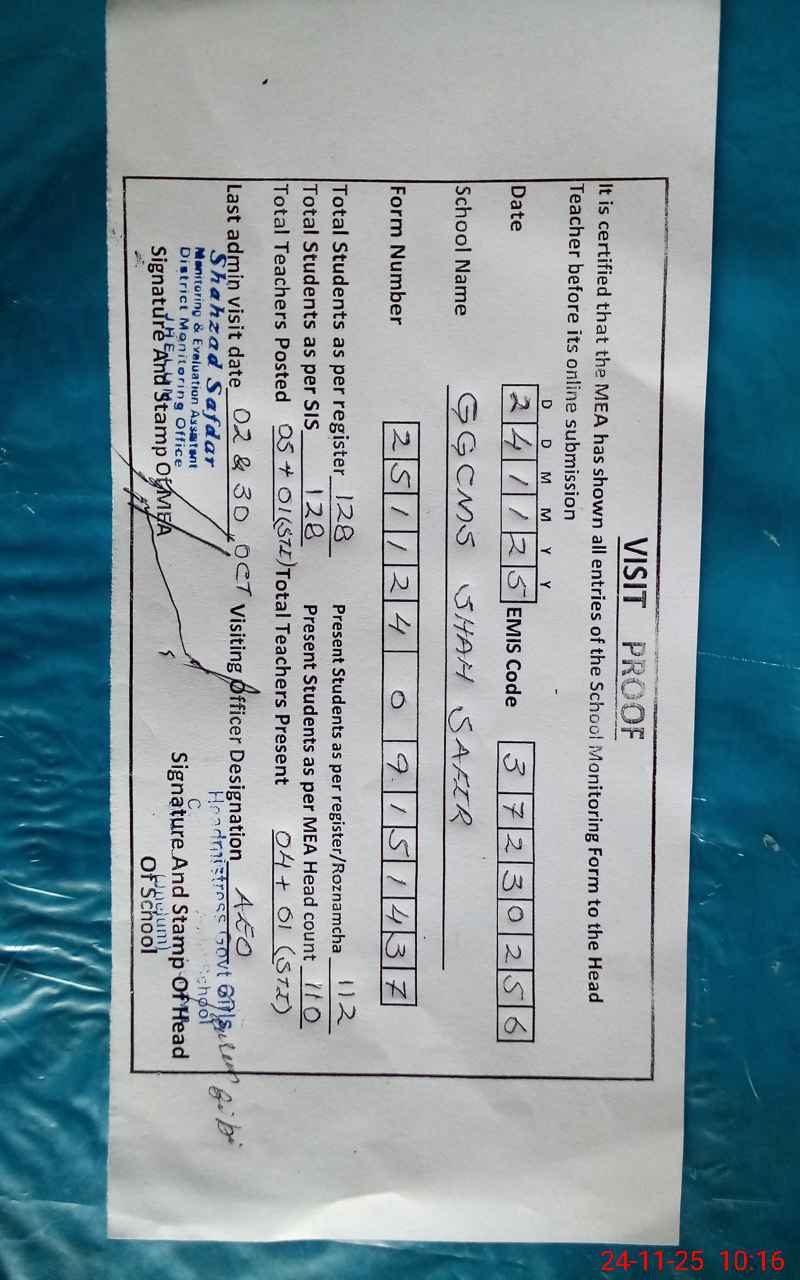 VISIT PROOF
It is certified that the MEA has shown all entries of the School Monitoring Form to the Head
Teacher before its online submission
D D M M Y Y
Date 241125 EMIS Code 37230256
School Name GGCMS SHAH SAFIR
Form Number 25112409151437
Total Students as per register 128 Present Students as per register/Roznamcha 112
Total Students as per SIS 128 Present Students as per MEA Head count 110
Total Teachers Posted 05+01(STI) Total Teachers Present 04+01(STI)
Last admin visit date 02 & 30 OCT Visiting Officer Designation AEO
Shahzad Safdar
Monitoring & Evaluation Assistant
District Monitoring Office
JHELUM
Signature And Stamp Of MEA
Headmistress Govt Girls
School
Signature And Stamp Of Head
Of School
24-11-25 10:16